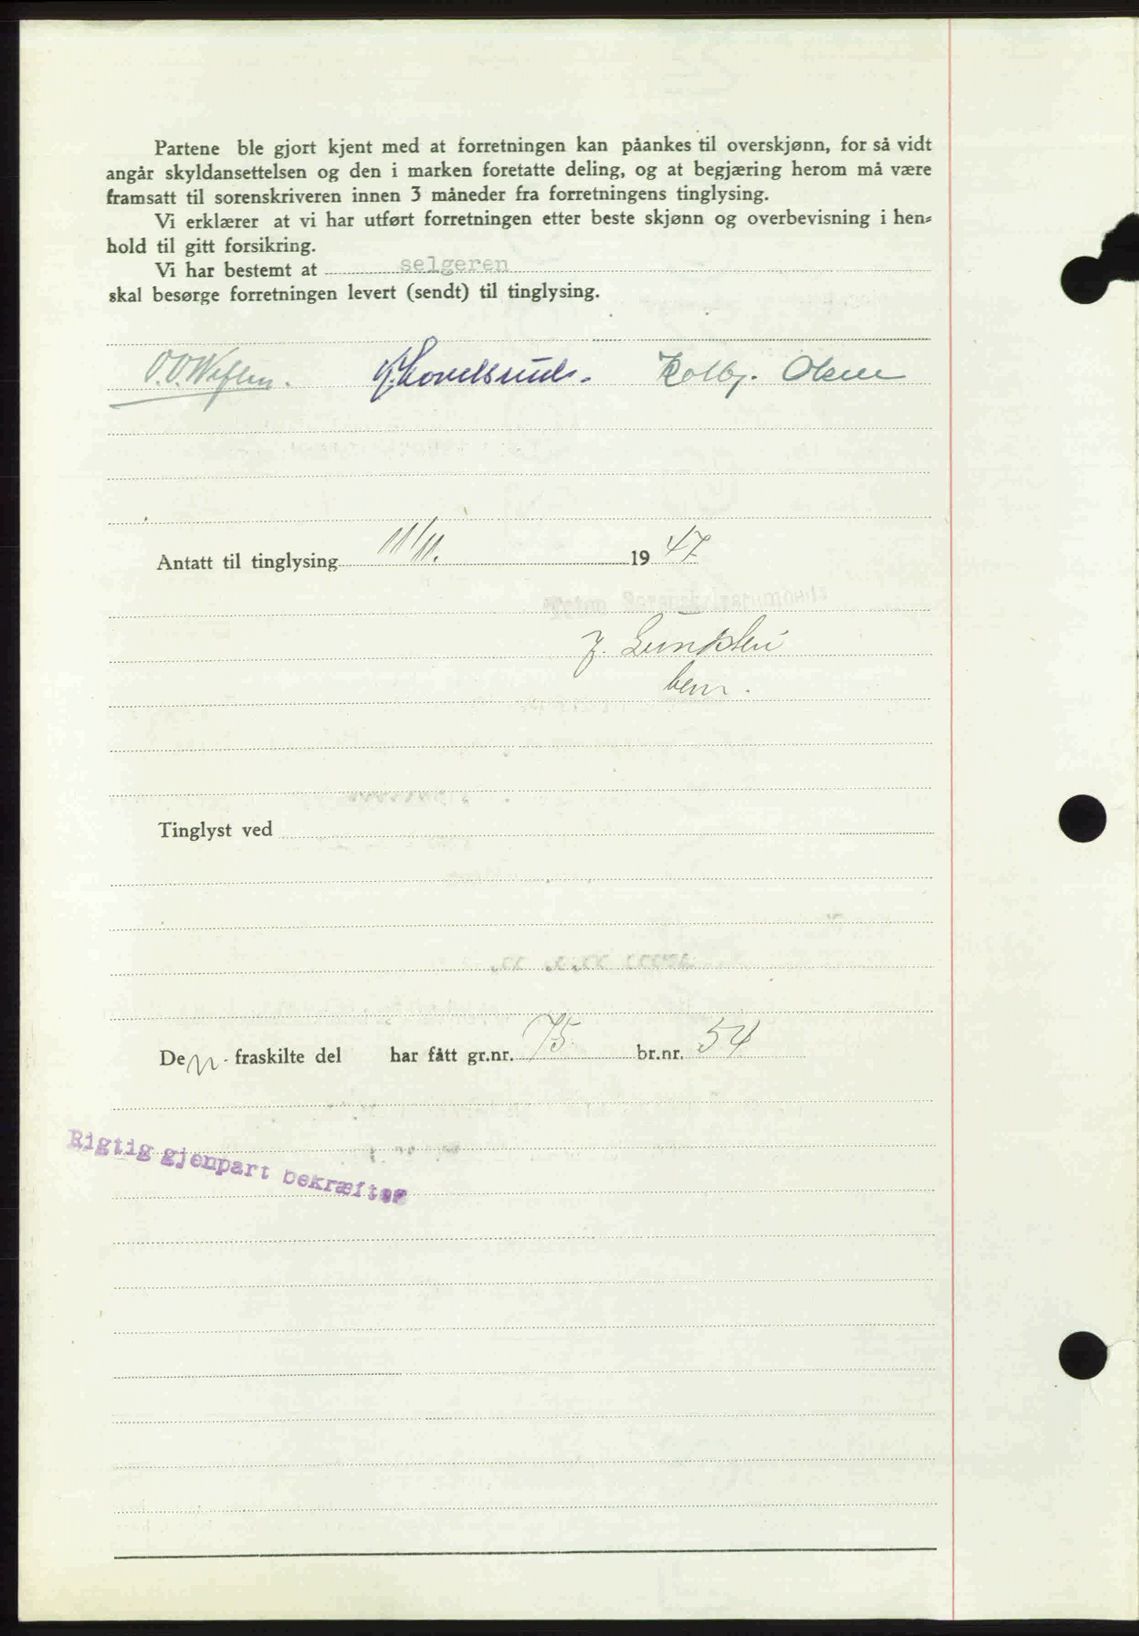 Partene ble gjort kjent med at forretningen kan påankes til overskjønn, for så vidt
angår skyldansettelsen og den i marken foretatte deling, og at begjæring herom må være
framsatt til sorenskriveren innen 3 måneder fra forretningens tinglysing.
Vi erklærer at vi har utført forretningen etter beste skjønn og overbevisning i hen-
hold til gitt forsikring.
Vi har bestemt at selgeren
skal besørge forretningen levert (sendt) til tinglysing.
Kolbj. Olsen
Antatt til tinglysing 11/11. 1947
Tinglyst ved
Den fraskilte del har fått gr.nr. 75 br.nr. 54
Rigtig gjenpart bekræftes